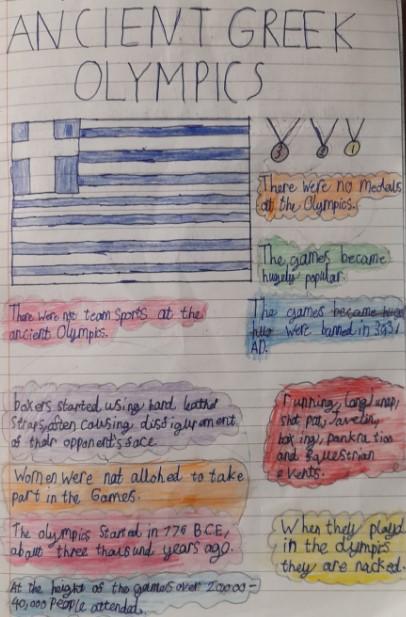 ANCIENT GREEK
OLYMPICS
3 2 1
There were no Medals
at the Olympics.
The games became
hugely popular.
There were not team sports at the
ancient Olympics.
The games became huge
were banned in 393
AD.
boxers started using hard leather
straps, often causing disfigurement
of their opponent's face.
Running, long jump,
shot put, Javelin,
boxing, pankration
and Equestrian
events.
Women were not allohed to take
part in the Games.
The olympics started in 776 BCE,
about three thousund years ago.
When they playd
in the olympics
they are nacked.
At the height of the games over 20000-
40,000 people attended.